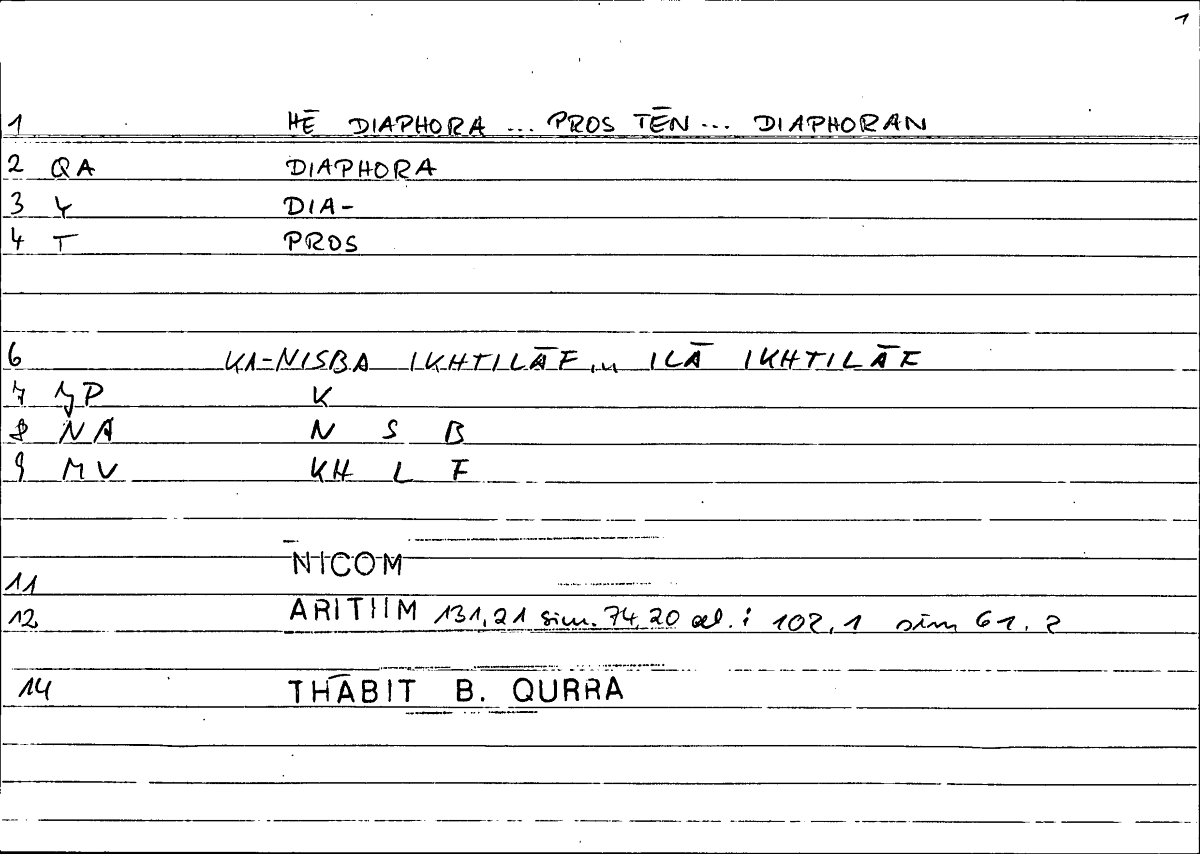 1
1 HĒ DIAPHORA ... PROS TĒN ... DIAPHORAN
2 QA DIAPHORA
3 Y DIA-
4 T PROS
6 KA-NISBA IKHTILĀF ... ILĀ IKHTILĀF
7 P K
8 NA N S B
9 MV KH L F
11 NICOM
12 ARITIIM 131,21 sim. 74,20 al. : 102,1 sim 61.2
14 THĀBIT B. QURRA